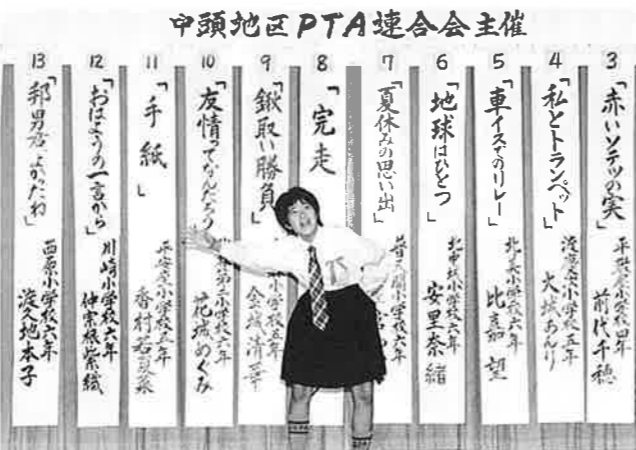 中頭地区PTA連合会主催
3
「赤いソテツの実」
平敷屋小学校四年
前代千穂
4
「私とトランペット」
渡慶次小学校五年
大城あんり
5
「車イスでのリレー」
北美小学校六年
比嘉 望
6
「地球はひとつ」
北中城小学校六年
安里奈緒
7
「夏休みの思い出」
普天間小学校六年
8
「完走」
9
「鍬取い勝負」
小学校五年
金城清
10
「友情ってなんだろう」
小学校六年
花城めぐみ
11
「手紙」
平安座小学校五年
香村若夏
12
「おはようの一言から」
川崎小学校六年
仲宗根紫織
13
「邦男君、よかったね」
西原小学校六年
渡久地本子